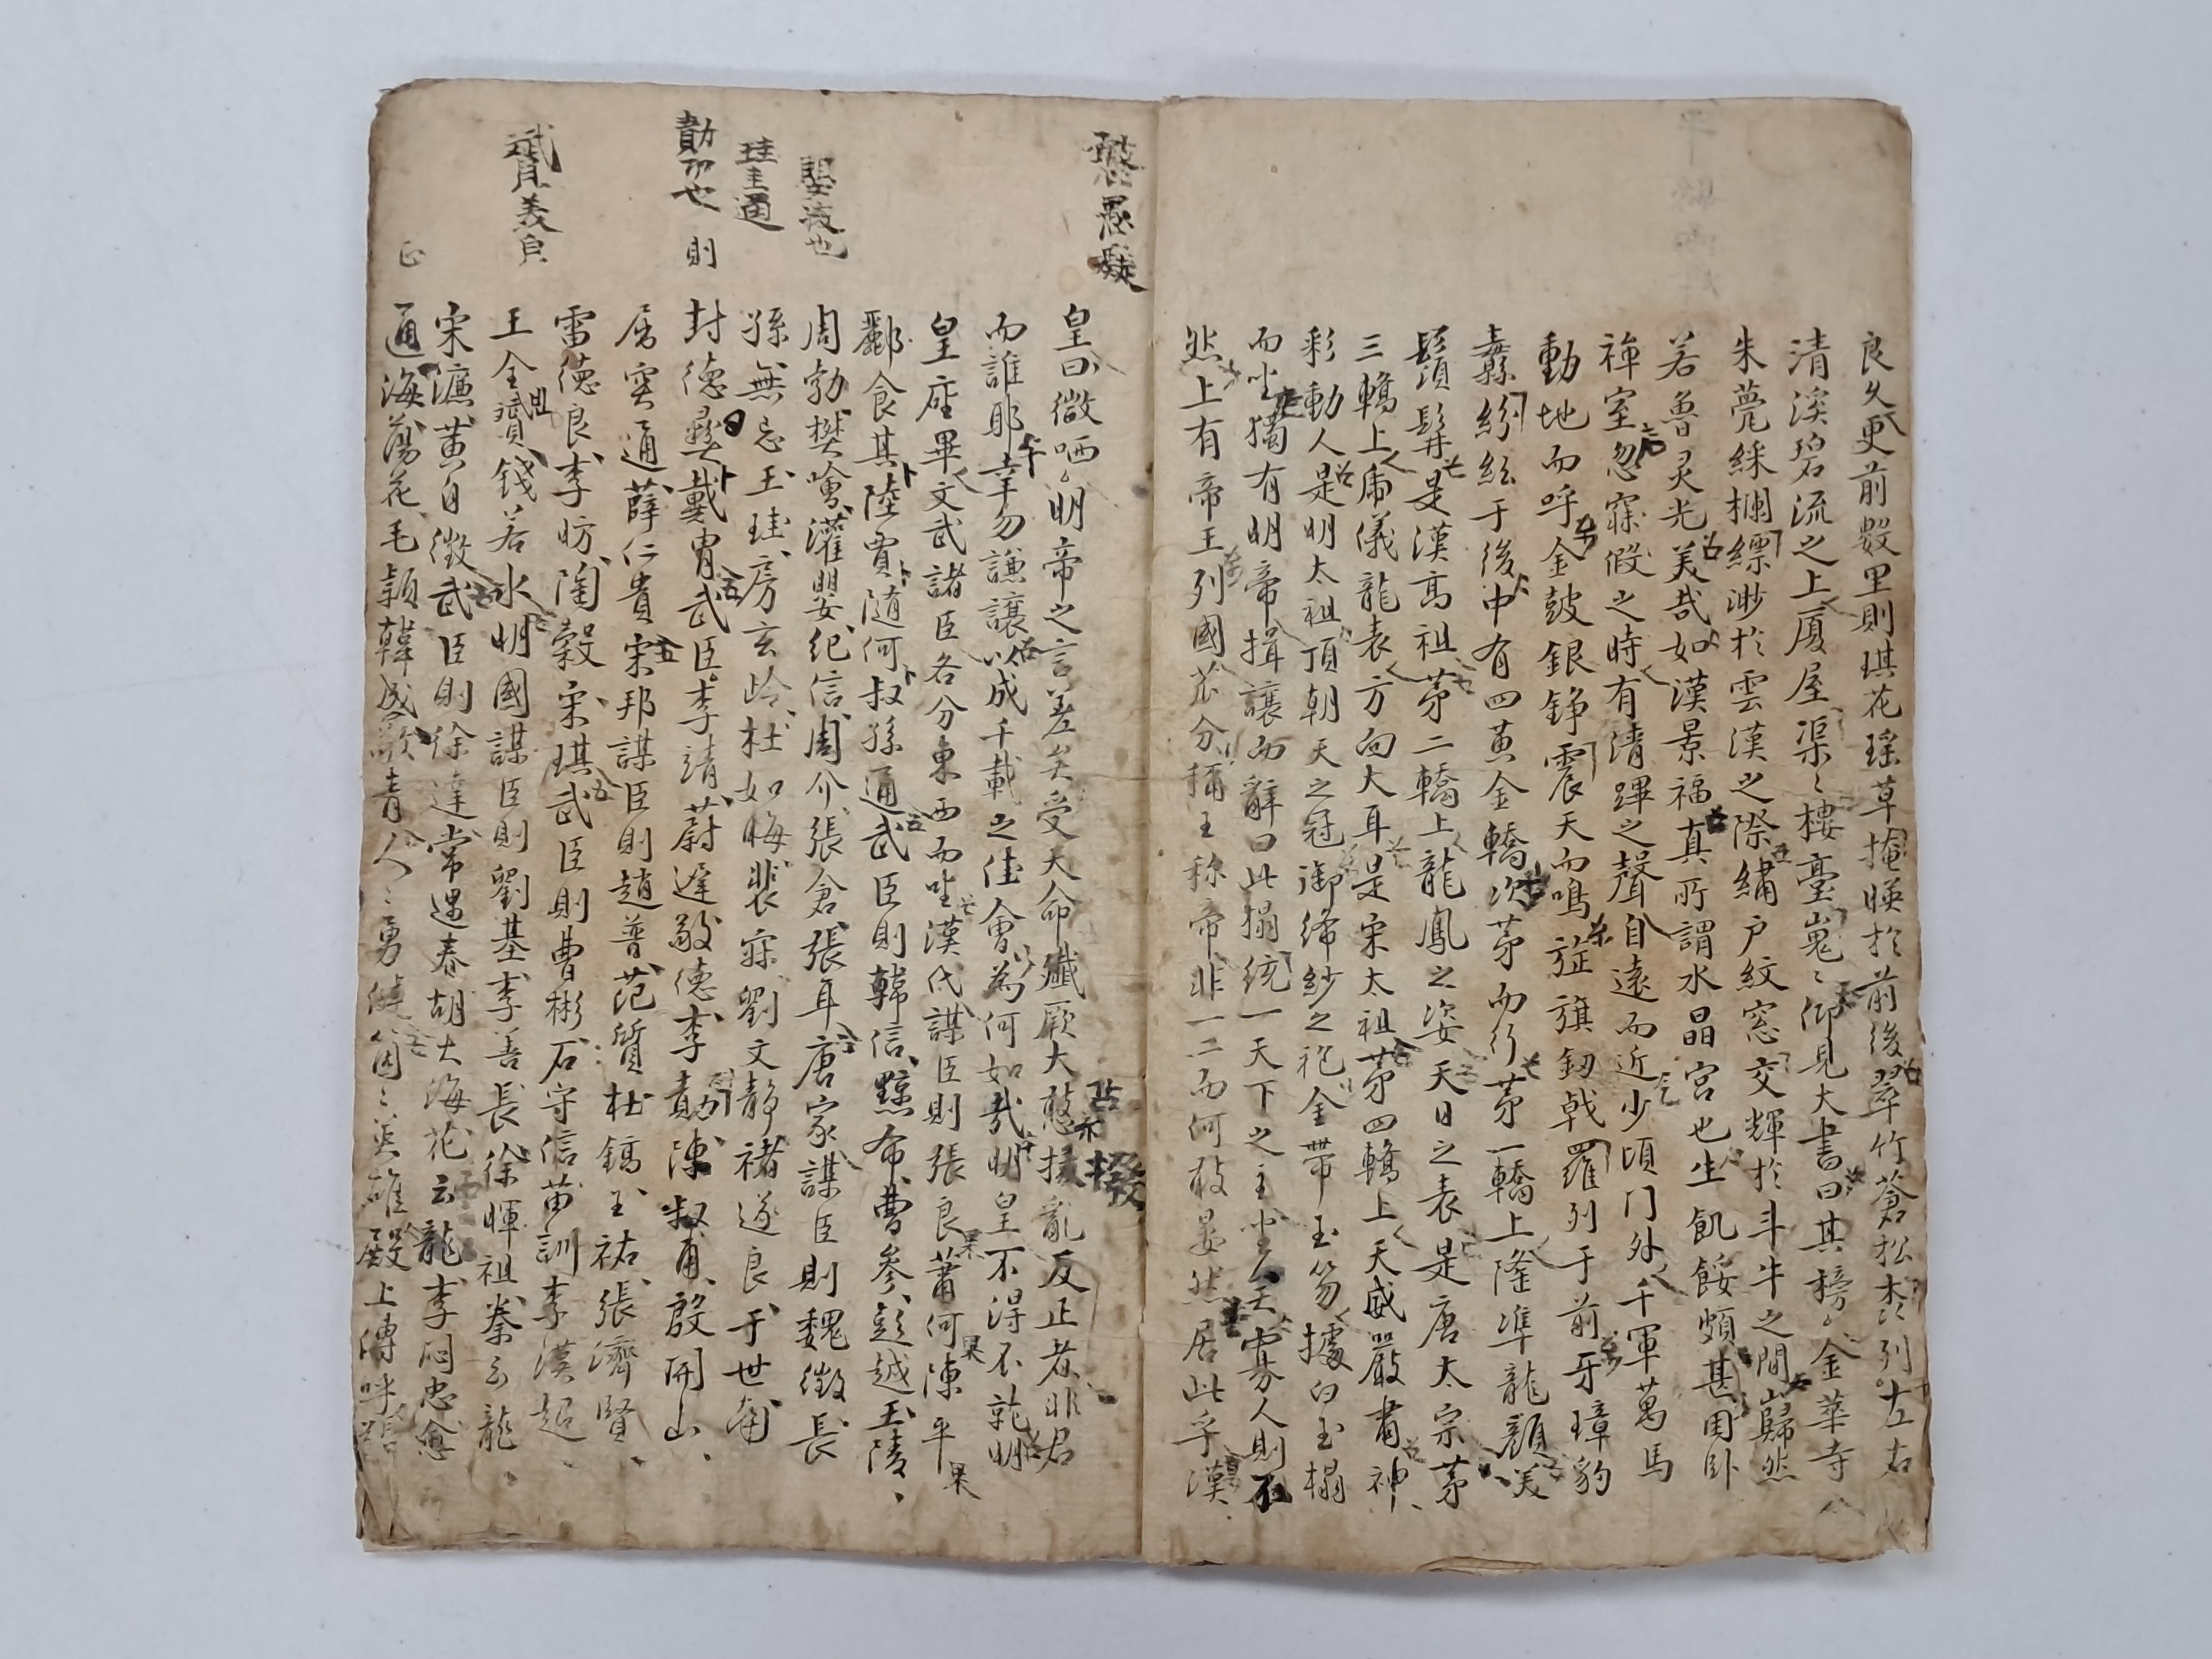 良久更前數里則琪花瑤草掩暎於前後翠竹蒼松森列左右
清溪碧流之上厦屋渠〻樓臺嵬〻仰見大書曰其榜〻金華寺
朱甍綵欄縹渺於雲漢之際繡户紋窓交輝於斗牛之間巋然
若魯灵光美哉如漢景福真所謂水晶宮也生飢餒頗甚困卧
禅室忽寐假之時有清蹕之聲自遠而近少頃门外千軍萬馬
動地而呼金皷銀錚震天而鳴旌旗釰戟羅列于前牙璋豹
纛紛紜于後中有四黄金轎次苐而行苐一轎上隆準龍顔美
鬚髯是漢高祖苐二轎上龍鳳之姿天日之表是唐太宗苐
三轎上虎儀龍表方面大耳是宋太祖苐四轎上天威嚴肅神
彩動人是明太祖頂朝天之冠御絳紗之袍金帶玉笏據白玉榻
而坐獨有明帝揖讓而辭曰此榻統一天下之主坐矣寡人則不
然上有帝王列國瓜分稱王称帝非一二而何敢晏然居此乎漢
皇曰微哂〻明帝之言差矣受天命殲厥大憝撥亂反正者非君
而誰耶幸勿謙讓以成千載之佳會為何如哉明皇不淂不就明
皇座畢文武諸臣各分東西而坐漢代謀臣則張良蕭何陳平
酈食其陸賈随何叔孫通武臣則韓信黥布曹參彭越王陵
周勃樊噲灌嬰紀信周介張倉張耳唐家謀臣則魏徵長
孫無忌王珪房玄岭杜如晦裴寂劉文静褚遂良于世䓁
封德彛戴冑武臣李靖蔚遲敬德李勣陳叔甫殷開山
屈突通薛仁貴宋邦謀臣則趙普范質杜鎬王祐張濟賢
雷德良李昉陶穀宋琪武臣則曹彬石守信苗訓李漢超
王全贇錢若水明國謀臣則劉基李善長徐暉祖秦云龍
宋濂黄自徵武臣則徐達常遇春胡大海花云龍李同忠兪
通海蕩花毛穎韓成歌青人〻勇健箇〻英雄殿上傳呼
憝愚癡
撥
嬰疲也
珪圭通
勣功也
則
贇美皃